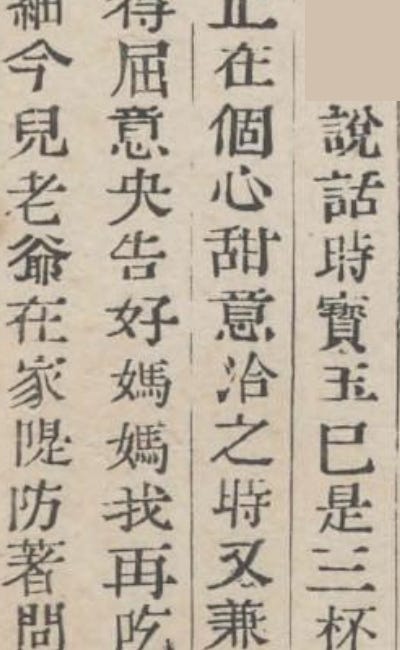 說話時寶玉已是三杯
正在個心甜意洽之時又兼
得屈意央告好媽媽我再吃
細今兒老爺在家隄防著問